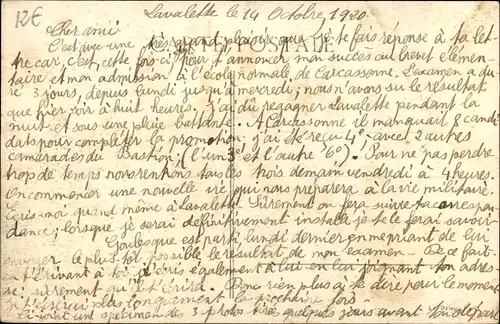 12€
Lavalette le 14 Octobre, 1920.
Cher ami
CARTE POSTALE
C'est avec une très grand plaisir que je te fais réponse à ta let
tre car, c'est cette fois-ci pour t'annoncer mon succès au brevet élémen-
taire et mon admission à l'école normale de Carcassonne. L'examen a du
ré 3 jours, depuis lundi jusqu'à mercredi; nous n'avons su le résultat
que hier soir à huit heures. j'ai dû regagner Lavalette pendant la
nuit et sous une pluie battante. A Carcassonne il manquait 8 candi
dats pour compléter la promotion: j'ai été reçu 4e, avec 2 autres
camarades du Bastion; (l'un 3e et l'autre 6e). Pour ne pas perdre
trop de temps nous rentrons tous les trois demain vendredi à 4 heures.
commencer une nouvelle vie qui nous préparera à la vie militaire.
Écris-moi quand même à Lavalette. Sûrement on fera suivre ta correspon
dance; lorsque je serai définitivement installé je te le ferai savoir
est parti lundi dernier en me priant de lui
envoyer le plus tôt possible le résultat de mon examen. Ce fait-
en t'écrivant à toi j'écris également à lui en lui joignant ton adres
se; sûrement qu'il t'écrira. Donc rien plus à te dire pour le moment
plus longuement la prochaine fois.
Ci-joint une spécimen des 3 photos tirées quelques jours avant ton départ